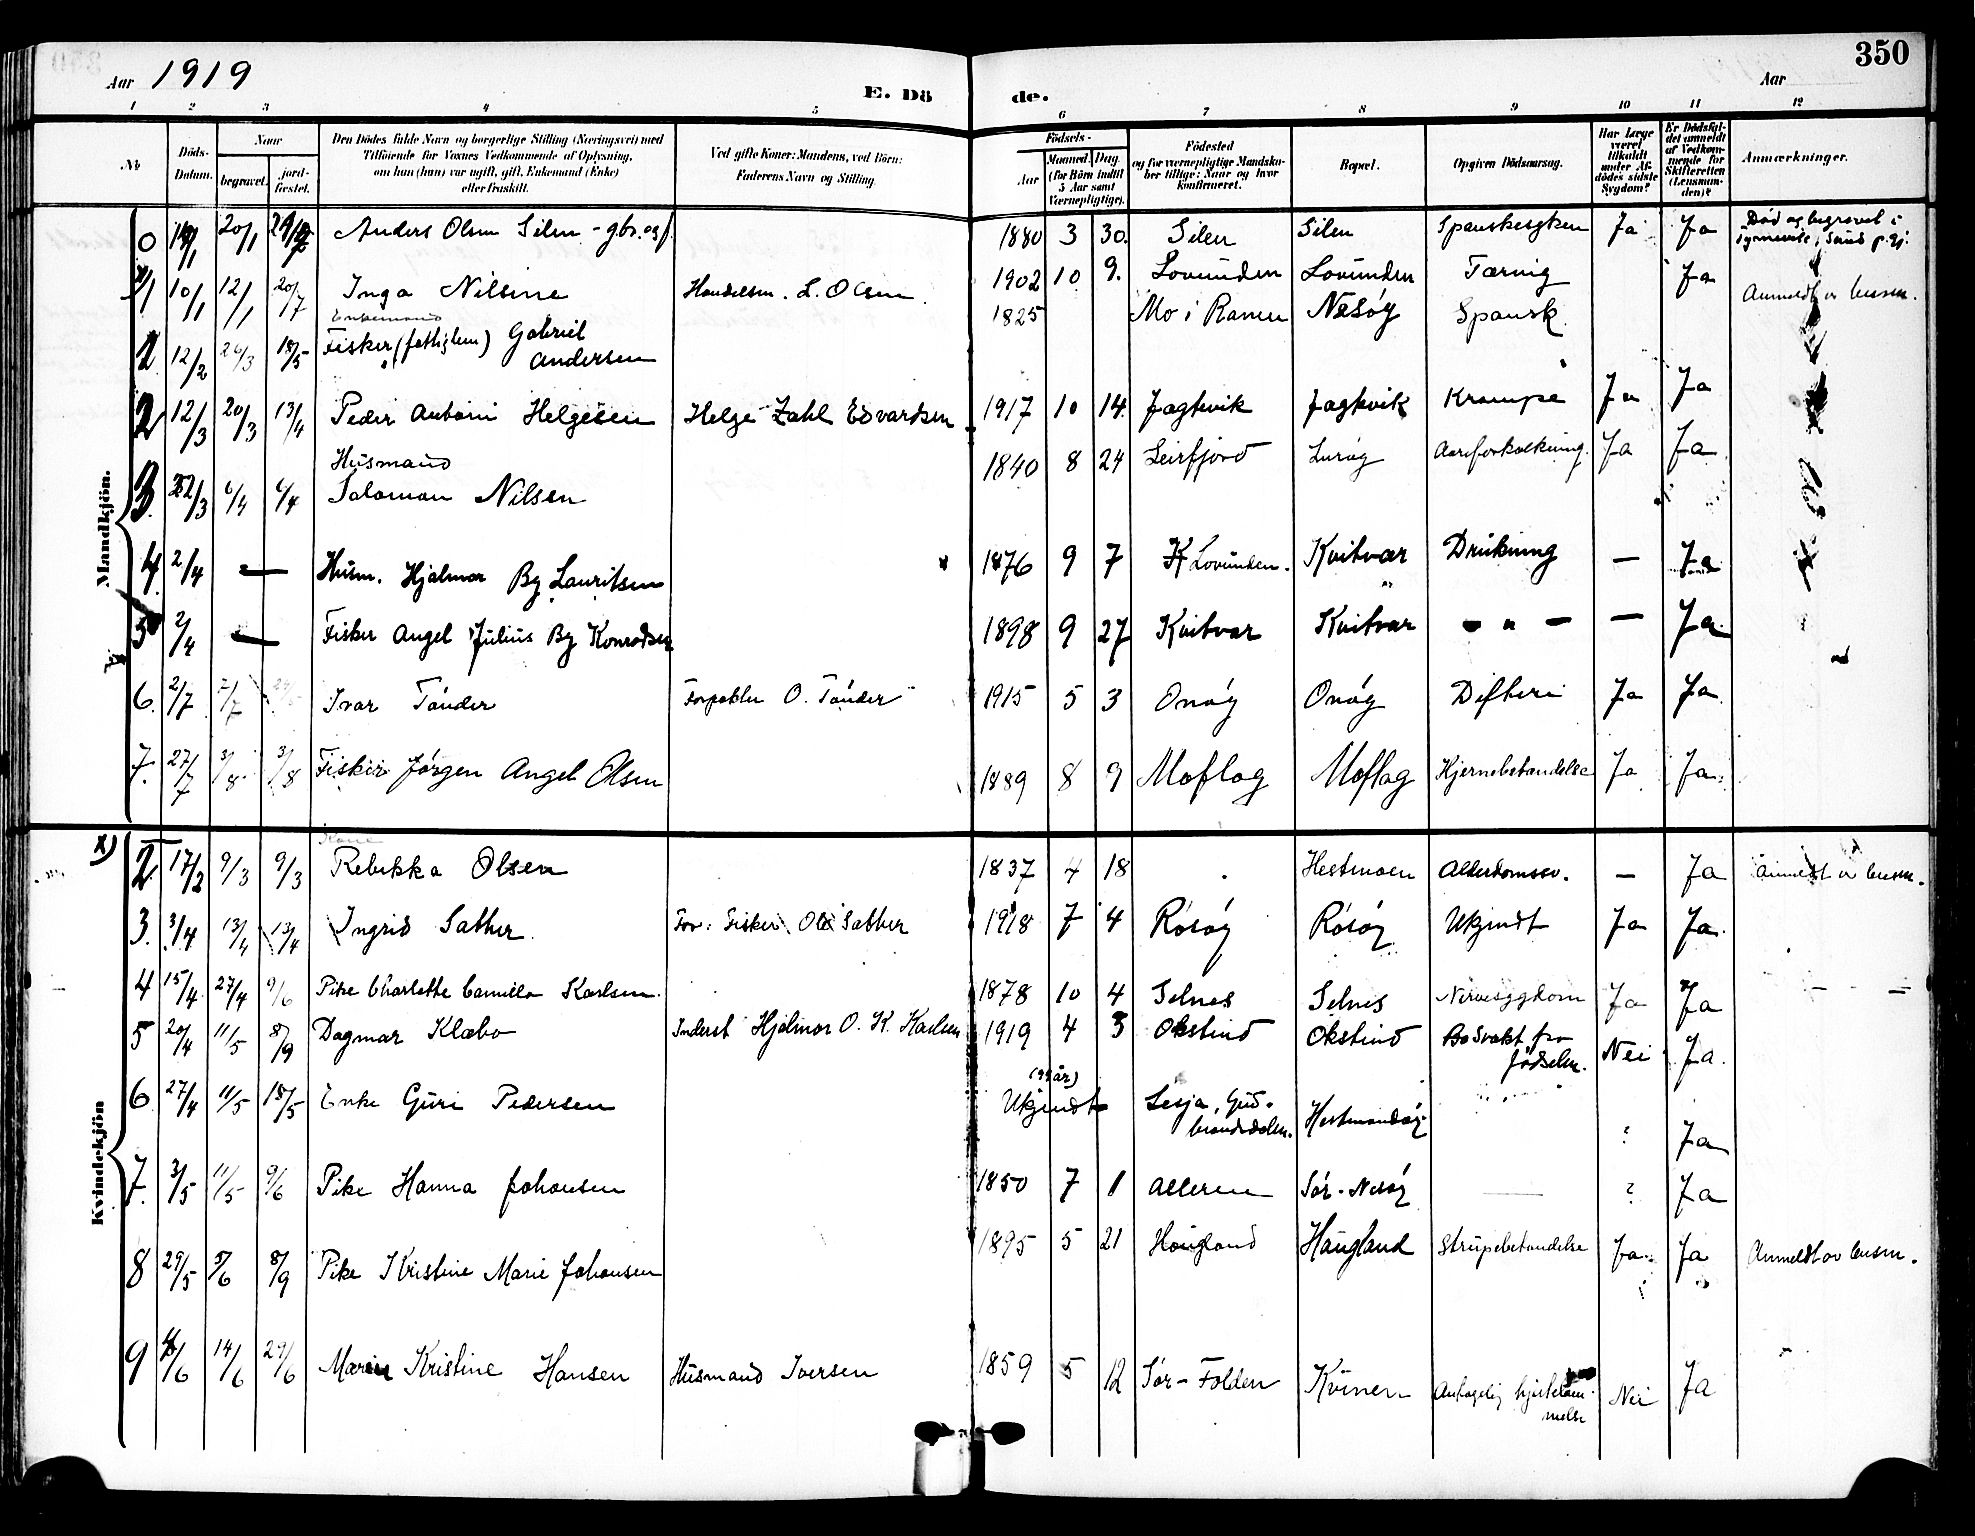 350
Aar 1919
E. Dö de.
Aar
1 2 3 4 5 6 7 8 9 10 11 12
No.
Döds-Datum.
Naar
begravet.
jord-fæstet.
Den Dödes fulde Navn og borgerlige Stilling (Næringsvei) med
Tilföiende for Voxnes Vedkommende af Oplysning,
om han (hun) var ugift, gift, Enkemand (Enke)
eller fraskilt.
Ved gifte Koner: Mandens, ved Börn:
Faderens Navn og Stilling.
Födsels-
Aar
Maaned. Dag.
(for Börn indtil
5 Aar samt
Værnepligtige).
Födested
og for værnepligtige Mandska-
ber tillige: Naar og hvor
konfirmeret.
Bopæl.
Opgiven Dödsaarsag.
Har Læge
været
tilkaldt
under Af-
dödes sidste
Sygdom?
Er Dödsfal-
det anmeldt
af Vedkom-
mende for
Skifteretten
(Lensman-
den)?
Anmærkninger.
Mandkjön.
0 20/1 Anders Olsen Silen - gbr. og f. 1880 3 30. Silen Silen Spanskesyken Ja Ja Död og begravet i
1 10/1 12/1 20/7 Inga Nilsine Handelsm. L. Olsen. 1902 10 9. Lovunden Lovunden Tæring Ja Anmeldt av lensm.
Enkemand
2 12/2 26/3 18/5 Fisker (fattiglem) Gabriel
Andersen 1825 Mo i Ranen Nesøy Spansk
2 12/3 20/3 13/4 Peder Antoni Helgesen Helge Zahl Edvardsen 1917 10 14. Jagtvik Jagtvik Krampe Ja Ja
Husmand
3. 6/4 6/4 Salomon Nilsen 1840 8 24 Leirfjord Lurøy Aareforkalkning. Ja Ja
4. 2/4 — Husm. Hjalmar By Lauritsen 1876 9 7 Lovunden. Kvitvær Drukning — Ja
5 2/4 — Fisker Angel Julius By Konradsen 1898 9 27 Kvitvær Kvitvær - " - — Ja
6. 2/7 7/7 Ivar Tönder Forpakter O. Tönder 1915 5 3 Onøy Onøy Difteri Ja Ja
7. 27/7 3/8 3/8 Fisker Jørgen Angel Olsen 1889 8 9 Moflag Moflag Hjernebetændelse Ja Ja
Kvindekjön
x) 2 17/2 9/3 9/3 Rebekka Olsen 1837 4 18 Hestmoen Alderdomssv. — Ja Anmeldt av lensm.
3. 3/4 13/4 13/4 Ingrid Sather For: Fisker Ole Sather 1918 7 4 Rösöy Rösöy Ukjendt Ja Ja
4 15/4 27/4 9/6 Pike Charlotte Camilla Karlsen. 1878 10 4 Selnes Selnes Nervesygdom Ja Ja
5 20/4 11/5 8/9 Dagmar Klæbo Inderst Hjalmar O. K. Karlsen 1919 4 3 Økstind Økstind Bosvakt fra
fødselen. Nei Ja.
6 27/4 11/5 18/5 Enke Guri Pedersen Ukjendt Lesja, Gud-
brandsdalen. Hestmandøy ? Ja
7. 3/5 11/5 9/6 Pike Hanna Johansen 1850 7 1 Alleren Sör-Nesöy — ? Ja
8 29/5 5/6 8/9 Pike Kristine Marie Johansen 1895 5 21 Haugland Haugland Strupebetændelse Ja Ja Anmeldt av lensm.
9 14/6 29/6 Maren Kristine Hansen Husmand Iversen 1859 5 12 Sör-Folden Kvinen Antagelig hjertelam-
melse Nei Ja